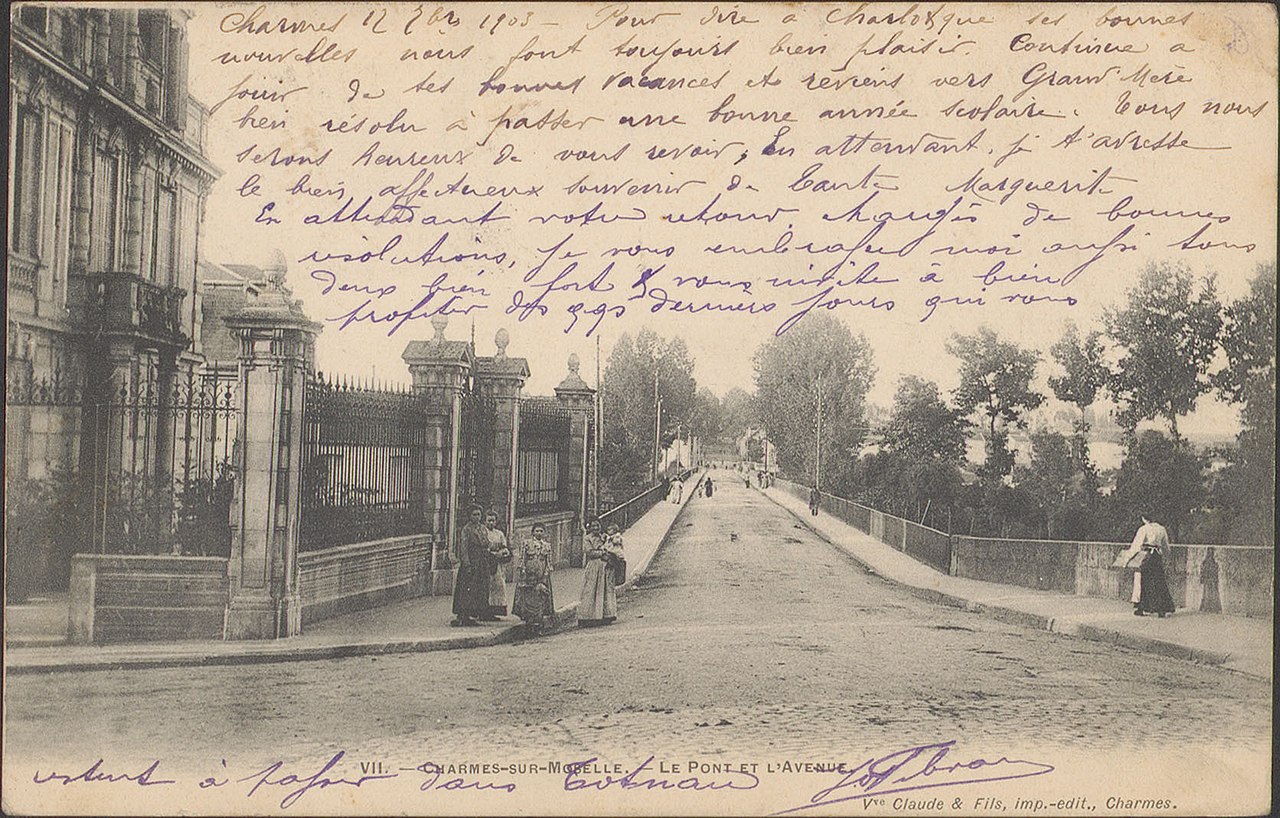 Charmes 12 7bre 1903 — Pour dire à Charlot que ses bonnes
nouvelles nous font toujours bien plaisir. Continue a
jouir de tes bonnes vacances et reviens vers Grand'Mère
bien résolu à passer une bonne année scolaire. Tous nous
serons heureux de vous revoir; En attendant, je t'adresse
le bien affectueux souvenir de Tante Marguerite
En attendant votre retour, chargés de bonnes
résolutions, je vous embrasse moi aussi tous
deux bien fort & vous invite à bien
profiter des qqs derniers jours qui vous
restent à passer dans
VII. — CHARMES-SUR-MOSELLE. — LE PONT ET L'AVENUE
Vve Claude & Fils, imp.-edit., Charmes.